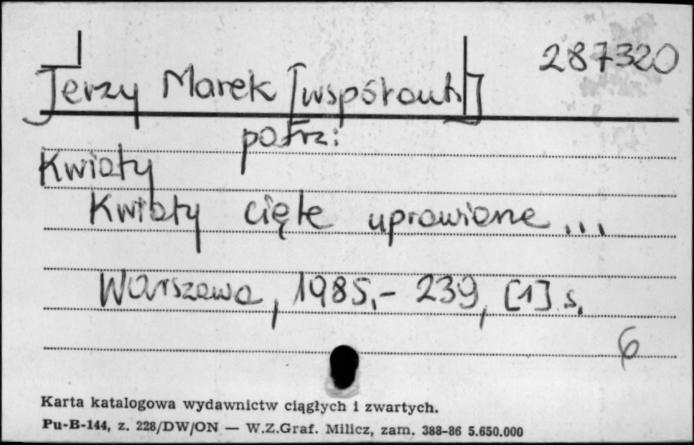 287320
Jerzy Marek [współaut.]
patrz:
Kwiaty
Kwiaty cięte uprawiane ...
Warszawa, 1985.- 239, [1] s.
6
Karta katalogowa wydawnictw ciągłych i zwartych.
Pu-B-144, z. 228/DW/ON — W.Z.Graf. Milicz, zam. 388-86 5.650.000